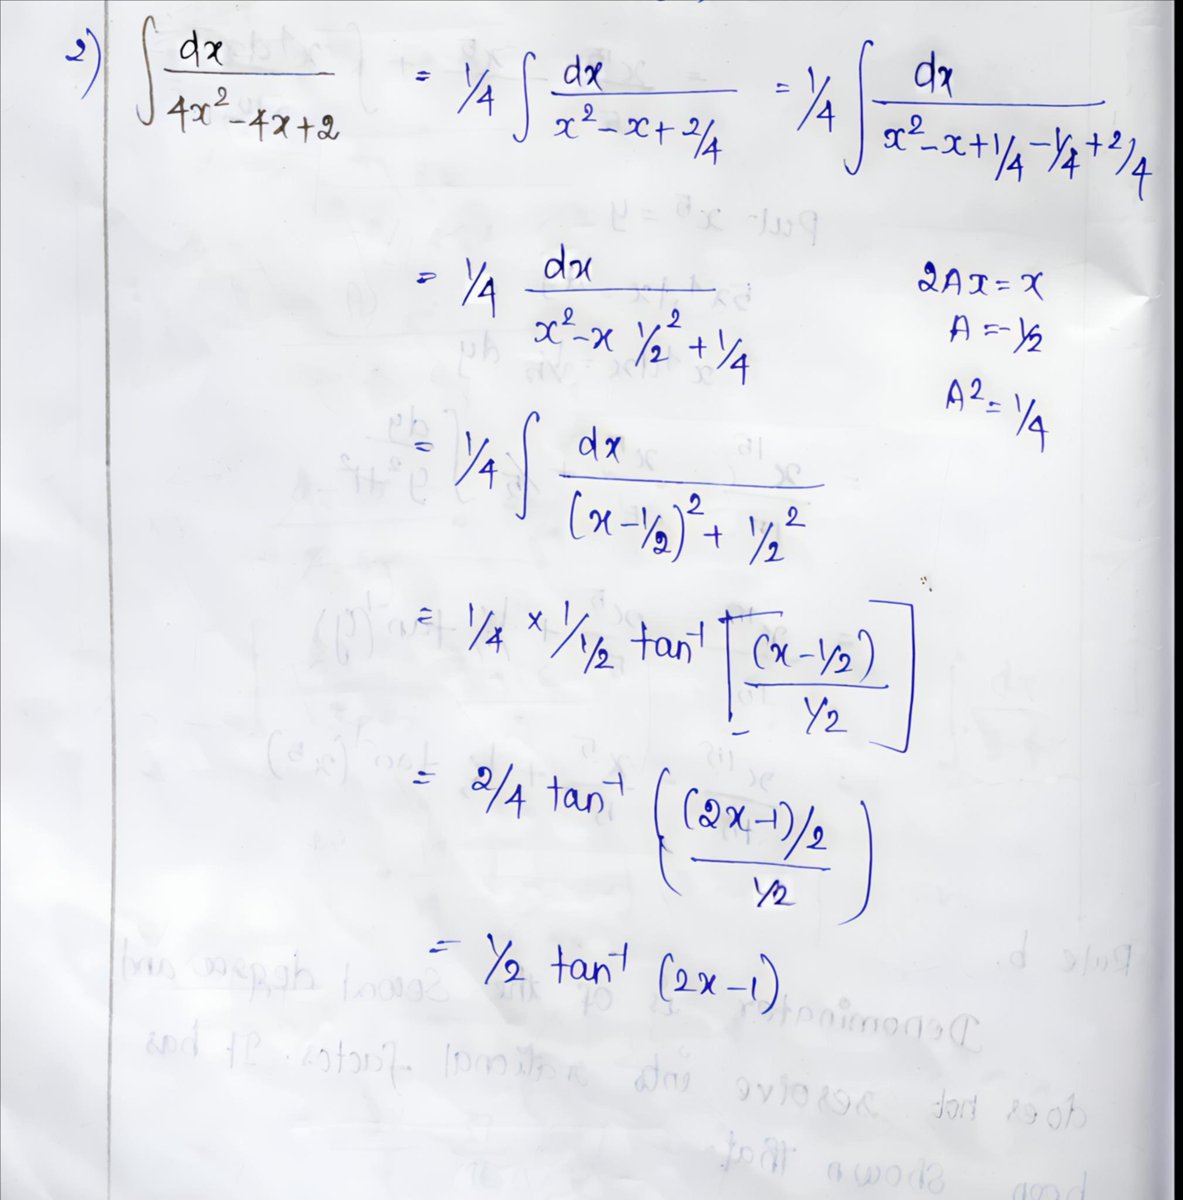 2) ∫ dx / 4x² - 4x + 2 = 1/4 ∫ dx / x² - x + 2/4 = 1/4 ∫ dx / x² - x + 1/4 - 1/4 + 2/4
= 1/4 dx / x² - x 1/2² + 1/4
2Ax = x
A = -1/2
A² = 1/4
= 1/4 ∫ dx / (x - 1/2)² + 1/2²
= 1/4 × 1/1/2 tan⁻¹ [(x - 1/2) / 1/2]
= 2/4 tan⁻¹ ((2x - 1)/2 / 1/2)
= 1/2 tan⁻¹ (2x - 1)